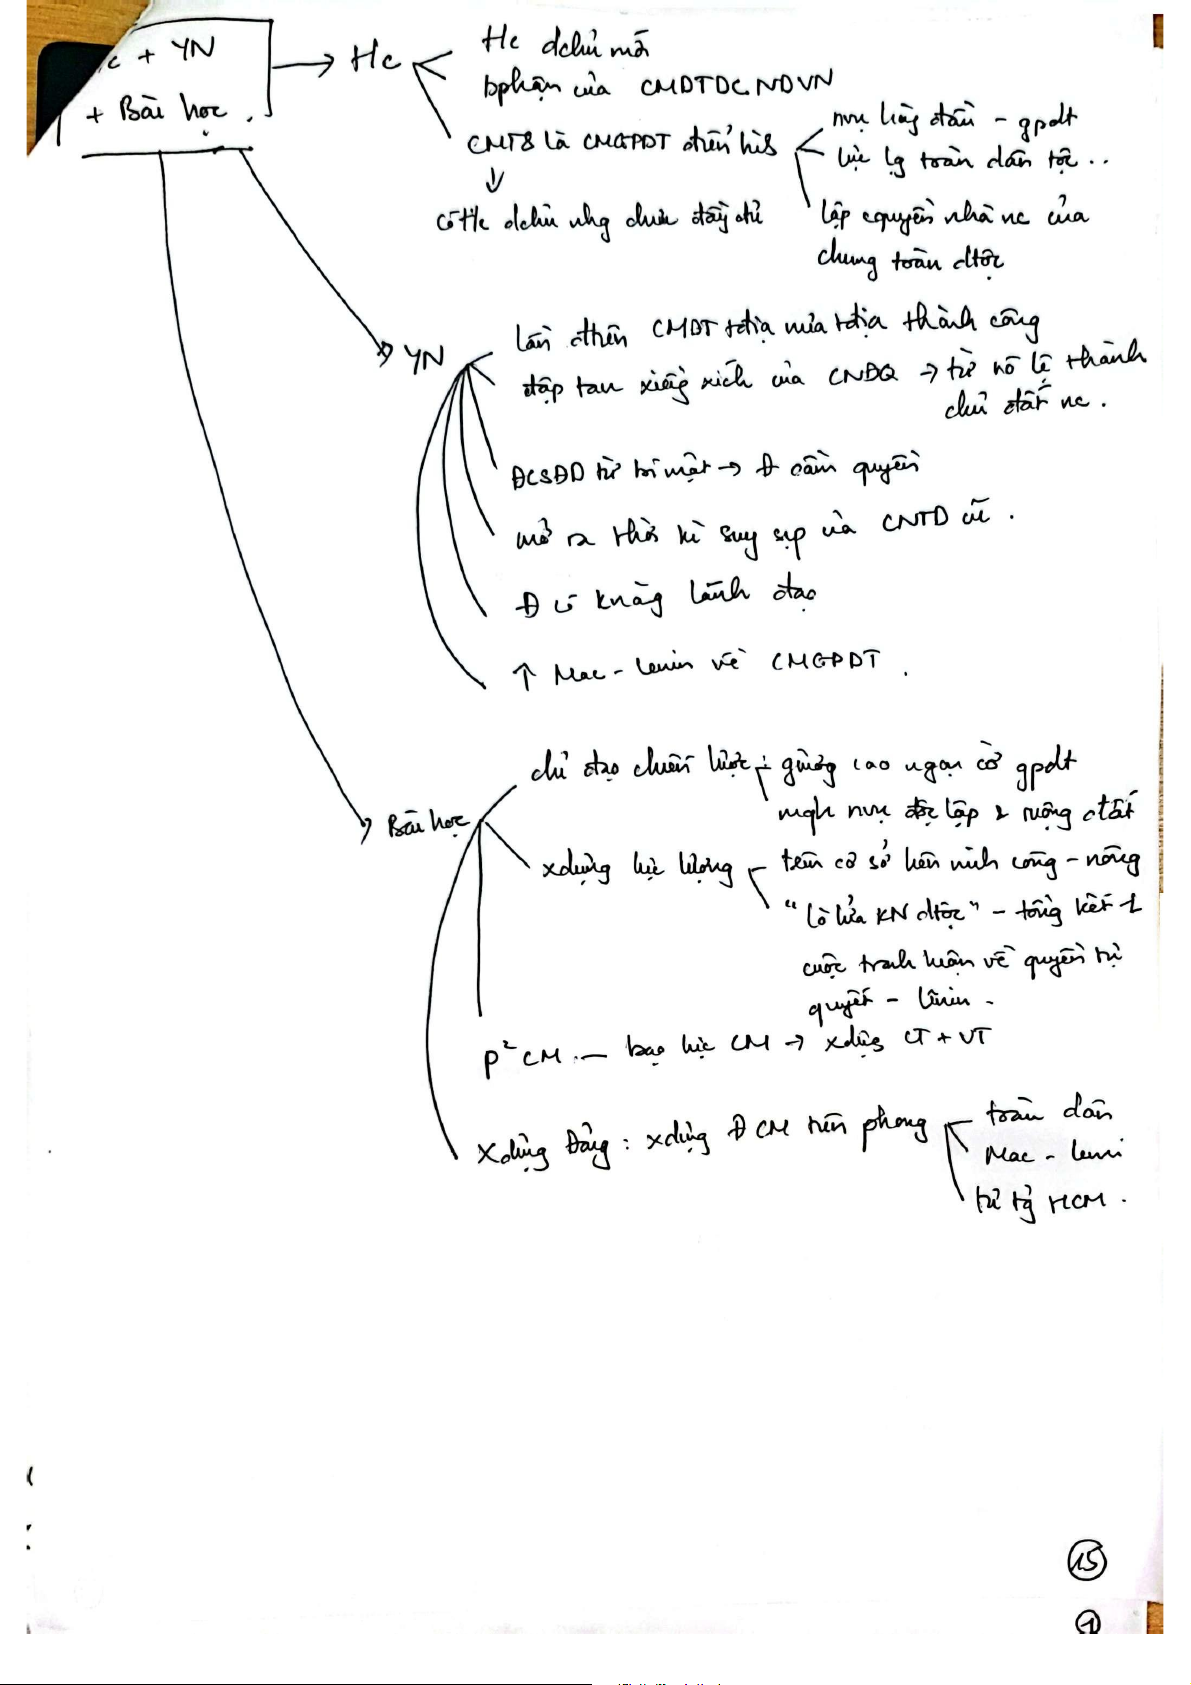 c + YN
+ Bài học.
→ Hc
Hc dchủ mới
bphận của CMDTDCNDVN
CMT8 là CMGPDT điển hình
nvụ hàng đầu - gpdt
lực lg toàn dân tộc ..
↓
có Hc dchủ nhg chưa đầy đủ
lập cquyền nhà nc của
chung toàn dtộc
→ YN
lần đtiên CMDT tđịa nửa tđịa thành công
đập tan xiềng xích của CNĐQ → từ nô lệ thành
chủ đất nc.
ĐCSĐD từ bí mật → Đ cầm quyền
mở ra thời kì suy sụp của CNTD cũ.
Đ có knăng lãnh đạo
↑ Mac - lenin về CMGPDT.
→ Bài học
chỉ đạo chiến lược: giương cao ngọn cờ gpdt
nvụ độc lập & ruộng đất
xdựng lực lượng
trên cơ sở liên minh công - nông
"lò lửa KN dtộc" - tổng kết 1
cuộc tranh luận về quyền tự
quyết - lênin.
P² CM. — bạo lực CM → xdựng CT + VT
Xdựng Đảng: xdựng Đ CM tiên phong
toàn dân
Mac - leni
tư tg HCM.
15
1